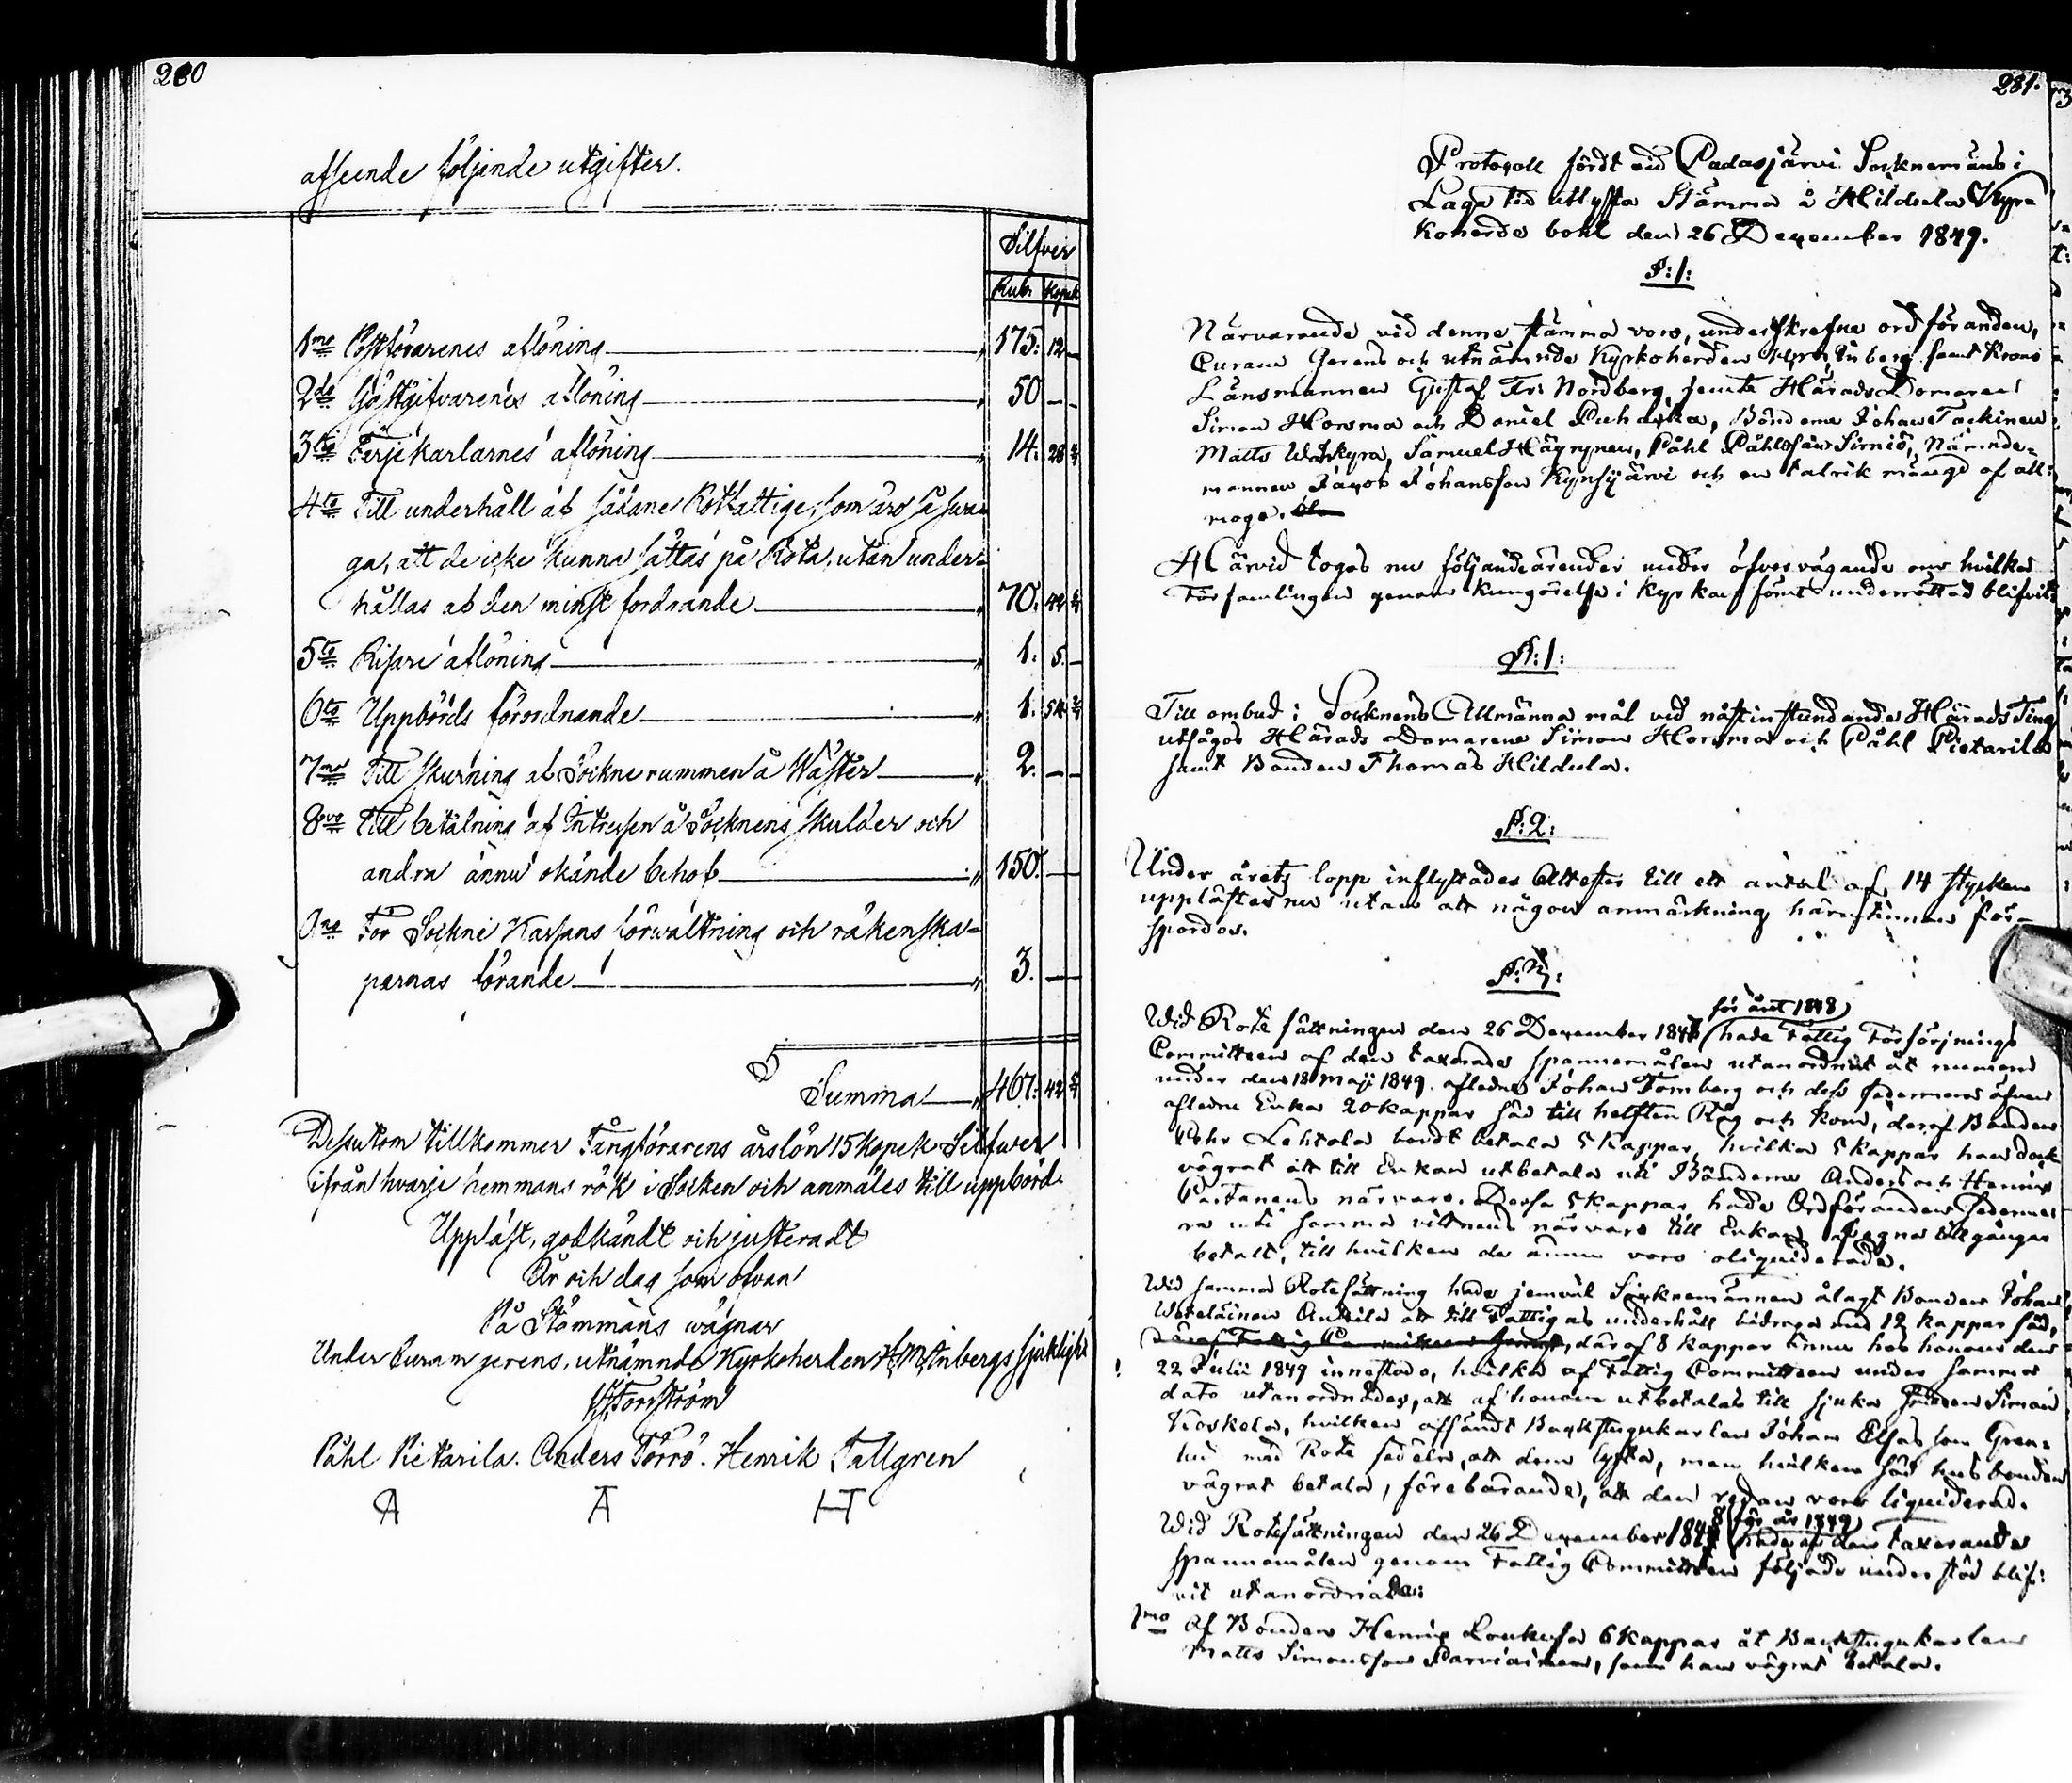 280
afseende följande utgifter.
Silfver
Rub. Kopek
1mo Postförarenes aflöning 175. 12 —
2do Gästgifvarenes aflöning 50 — —
3tio Färjekarlarnes aflöning 14. 28
4to Till underhåll af sådane Rotfattige, som äro så sva-
ga, att de icke kunna sättas på Rota, utan under-
hållas af den minst fordrande 70.
5to Risare aflöning 1. 5. —
6to Uppbörds förordnande 1. 54
7mo Till skurning af Sockne rummen å Wäster 2. — —
8vo Till betalning af Intressen å Socknens skulder och
andra ännu okände behof 150. —
För Sockne Kassans förwaltning och räkenska-
pernas förande 3. —
Summa 467. 42
Dessutom tillkommer Fångförarens årslön 15 kopek Silfwer
ifrån hvarje hemmans rök i Socken och anmäles till uppbörd.
Uppläst, godkändt och justeradt
År och dag som ofvan
På Stämmans wägnar
Under Curam gerens, utnämnde Kyrkoherden Inbergs sjuklighet
Forsström
Påhl Pietarila. Anders Törrö. Henrik Tallgren
A A HT
281.
Protocoll fördt vid Padasjärvi Socknemäns i
Laga tid utlysta Stämma å Hildula Kyrc
koherde bohl den 26 December 1849.
§:1:
Närvarande vid denne stämma voro, underskrefne ordföranden,
Curam Gerens och utnämnde Kyrkoherden Inberg samt Krono
Länsmannen Gustaf Nordberg, jemte Härads Domaren
Simon Horsma och Daniel Puhakka, Bönderne Johan Tackinen
Matts Uskyra, Samuel Häyrynen, Påhl Påhlsson Sirniö, Nämnde-
mannen Jacob Johansson Kynsijärvi och en talrik mängd af all:
moge.
Härvid togos nu följande ärender under öfvervägande om hvilka
Församlingen genom Kungörelse i Kyrkan förut underrättad blifvit:
§:1:
Till ombud i Socknens Allmänna mål vid nästinstundande Härads Ting
utsågos Härads Domarene Simon Horsma och Påhl Pietarila
samt Bonden Thomas Hildula.
§:2:
Under årets lopp inflyttades Attester till ett antal af 14 stycken
upplästes nu utan att någon anmärkning häremot för-
spordes.
§:3:
för året 1848
Wid Rote sättningen den 26 December 184 hade Fattig Försörjnings
Committeen af den taxerade spannemålen utanordnat åt numera
under den 18 Maji 1849. afledne Johan Tornberg och dess sedermera äfven
afledne Enka 20 kappar säd till helften Råg och Korn, deraf Bonden
Lehtola bordt betala 5 Kappar, hvilka 5 kappar han dock
vägrat att till Enkan utbetala uti Bönderne Anders och Henrick
Partanens närvaro. Dessa 5 kappar hade Ordföranden sederme-
ra uti samma vittnens närvaro till Enkan af egna tillgångar
betalt, till hvilken de ännu voro oliquiderade.
Wid samma Rotesättning hade jemväl Socknemännen ålagt Bonden Johan
Andila att till Fattigas underhåll bidraga med 12 kappar säd,
däraf 8 kappar ännu hos honom den
22 Julii 1849 innestodo, hvilka af Fattig Committeen under samma
dato utanordnades, att af honom utbetalas till sjuka Simon
Koskela, hvilken afsändt Backstugukarlen Johan Eliasson Grön-
lund med Rote sedeln, att dem lyfta, men hvilken säd husbonden
vägrat betala, förebärande, att den redan vore liquiderad.
för år 1849
Wid Rotesättningen den 26 December 1848 hade af den taxerade
spannemålen genom Fattig Committeen följade understöd blif:
vit utanordnade:
1mo Af Bonden Henric Loukusa 6 kappar åt Backstugukarlen
Matts Simonsson Parviainen, som han vägrat betala.